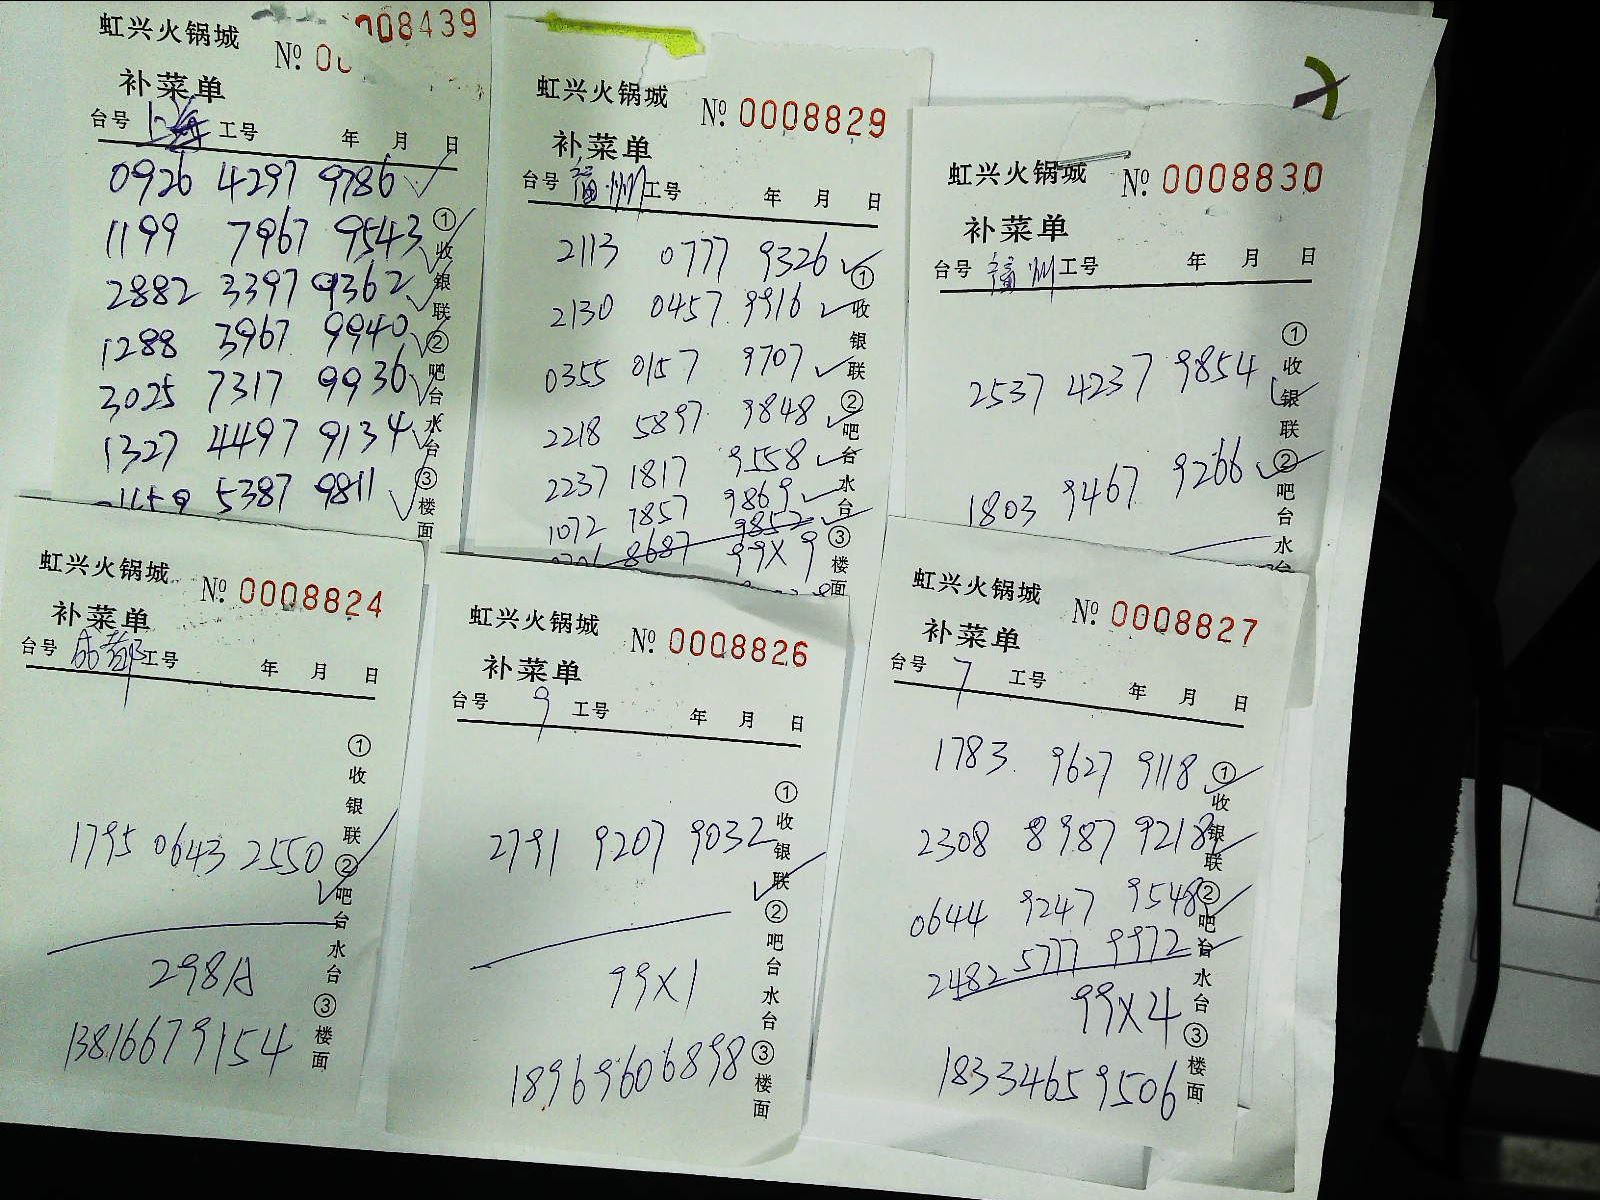 虹兴火锅城
008439
№ 00
补菜单
台号 上海 工号 年 月 日
0926 4297 9786
1199 7967 9543
2882 3397 9362
1288 3967 9940
3025 7317 9936
1327 4497 9134
5387 9811
①收银联②吧台水台③楼面
虹兴火锅城
№ 0008829
补菜单
台号 福州 工号 年 月 日
2113 0777 9326
2130 0457 9916
0355 0157 9707
2218 5897 9848
2237 1817 9558
1072 7857 9869
8687 9852
99X9
①收银联②吧台水台③楼面
虹兴火锅城
№ 0008830
补菜单
台号 福州 工号 年 月 日
2537 4237 9854
1803 9467 9266
①收银联②吧台水台
虹兴火锅城
№ 0008824
补菜单
台号 成都 工号 年 月 日
1795 0643 2550
298A
13816679154
①收银联②吧台水台③楼面
虹兴火锅城
№ 0008826
补菜单
台号 9 工号 年 月 日
2791 9207 9032
99X1
18969606898
①收银联②吧台水台③楼面
虹兴火锅城
№ 0008827
补菜单
台号 7 工号 年 月 日
1783 9627 9118
2308 8987 9218
0644 9247 9548
2482 5777 9972
99X4
18334659506
①收银联②吧台水台③楼面